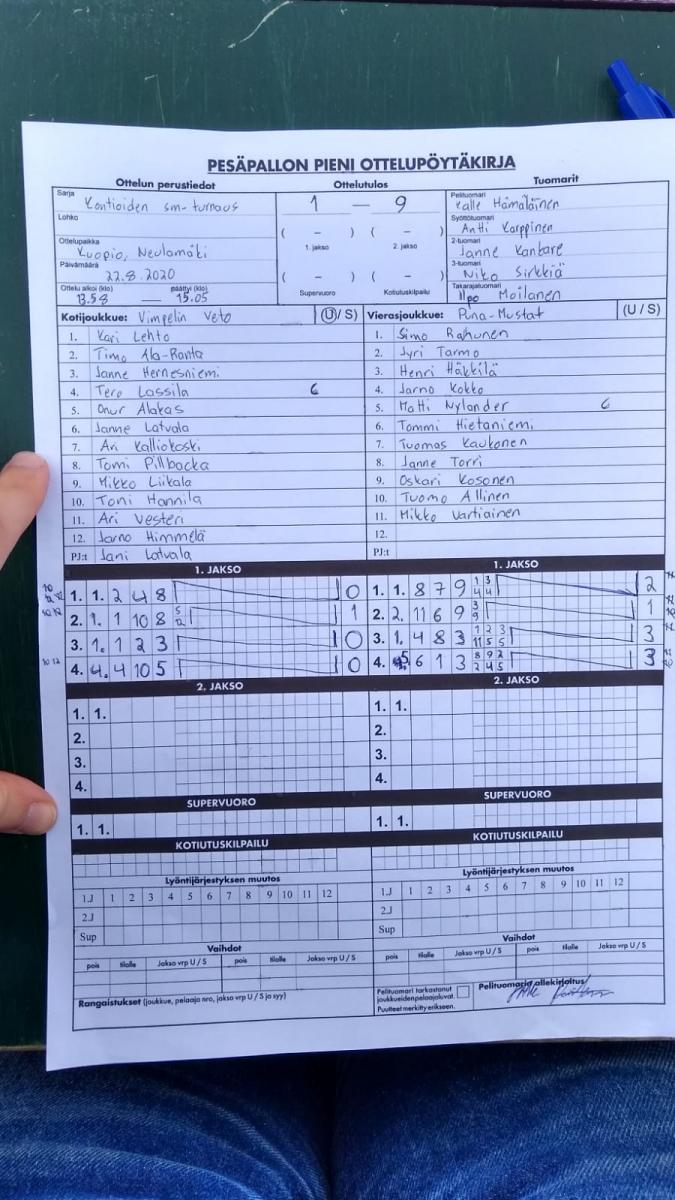 PESÄPALLON PIENI OTTELUPÖYTÄKIRJA
Ottelun perustiedot
Sarja
Kontioiden sm-turnaus
Lohko
Ottelupaikka
Kuopio, Neulamäki
Päivämäärä
22.8.2020
Ottelu alkoi (klo) päättyi (klo)
13.58 — 15.05
Ottelutulos
1 — 9
( – ) ( – )
1. jakso 2. jakso
( – ) ( – )
Supervuoro Kotiutuskilpailu
Tuomarit
Pelituomari
Kalle Hämäläinen
Syöttötuomari
Antti Karppinen
2-tuomari
Janne Kantare
3-tuomari
Niko Sirkkiä
Takarajatuomari
Ilpo Moilanen
Kotijoukkue: Vimpelin Veto (U/ S)
1. Kari Lehto
2. Timo Ala-Ranta
3. Janne Hernesniemi
4. Tero Lassila 6
5. Onur Alakas
6. Janne Latvala
7. Ari Kalliokoski
8. Tomi Pillbacka
9. Mikko Liikala
10. Toni Hannila
11. Ari Vesteri
12. Jarno Himmelä
PJ:t Jani Latvala
Vierasjoukkue: Puna-Mustat (U / S)
1. Simo Rahunen
2. Jyri Tarmo
3. Henri Häkkilä
4. Jarno Kokko
5. Matti Nylander 6
6. Tommi Hietaniemi
7. Tuomas Kaukonen
8. Janne Torri
9. Oskari Kosonen
10. Tuomo Allinen
11. Mikko Vartiainen
12.
PJ:t
1. JAKSO
1. 1. 2 4 8 0
2. 1. 1 10 8 5 12 1
3. 1. 1 2 3 0
4. 4. 4 10 5 0
1. JAKSO
1. 1. 8 7 9 1 3 4 4 2
2. 2. 11 6 9 3 9 1
3. 1. 4 8 3 1 2 3 11 5 5 3
4. 5 6 1 3 8 9 2 2 4 5 3
2. JAKSO
1. 1.
2.
3.
4.
2. JAKSO
1. 1.
2.
3.
4.
SUPERVUORO
1. 1.
SUPERVUORO
1. 1.
KOTIUTUSKILPAILU
KOTIUTUSKILPAILU
Lyöntijärjestyksen muutos
1.J 1 2 3 4 5 6 7 8 9 10 11 12
2.J
Sup
Lyöntijärjestyksen muutos
1.J 1 2 3 4 5 6 7 8 9 10 11 12
2.J
Sup
Vaihdot
pois tilalle Jakso vrp U / S pois tilalle Jakso vrp U / S
Vaihdot
pois tilalle Jakso vrp U / S pois tilalle Jakso vrp U / S
Rangaistukset (joukkue, pelaaja nro, jakso vrp U / S ja syy)
Pelituomari tarkastanut
joukkueidenpelaajaluvat.
Puutteet merkitty erikseen.
Pelituomarin allekirjoitus